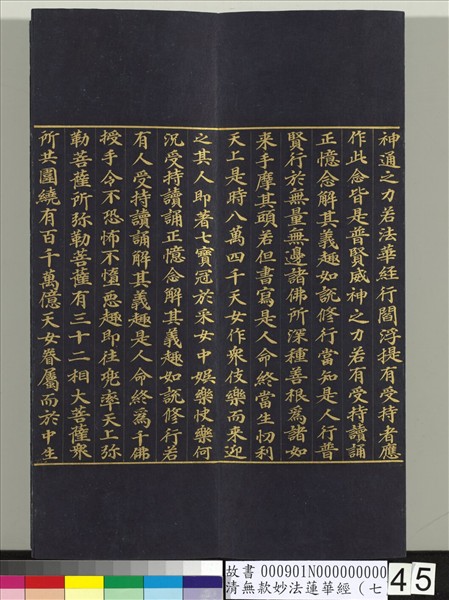 神通之力若法華經行閻浮提有受持者應
作此念皆是普賢威神之力若有受持讀誦
正憶念解其義趣如說修行當知是人行普
賢行於無量無邊諸佛所深種善根為諸如
来手摩其頭若但書寫是人命終當生忉利
天上是時八萬四千天女作衆伎樂而來迎
之其人即著七寶冠於采女中娛樂快樂何
況受持讀誦正憶念解其義趣如說修行若
有人受持讀誦解其義趣是人命終爲千佛
授手令不恐怖不墮惡趣即往兜率天上弥
勒菩薩所弥勒菩薩有三十二相大菩薩衆
所共圍繞有百千萬億天女眷屬而於中生
故書 000901N000000000
清無款妙法蓮華經（七
45